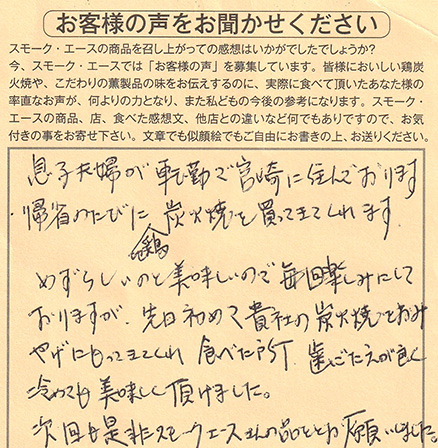 お客様の声をお聞かせください
スモーク・エースの商品を召し上がっての感想はいかがでしたでしょうか?
今、スモーク・エースでは「お客様の声」を募集しています。皆様においしい鶏炭
火焼や、こだわりの薫製品の味をお伝えするのに、実際に食べて頂いたあなた様の
率直なお声が、何よりの力となり、また私どもの今後の参考になります。スモーク・
エースの商品、店、食べた感想文、他店との違いなど何でもありですので、お気
付きの事をお寄せ下さい。文章でも似顔絵でもご自由にお書きの上、お送りください。
息子夫婦が転勤で宮崎に住んでおります
帰省のたびに鶏炭火焼を買ってきてくれます
めずらしいのと美味しいので毎回楽しみにして
おりますが、先日初めて貴社の炭火焼をおみ
やげにもってきてくれ 食べた所、歯ごたえが良く
冷めても美味しく頂けました。
次回も是非スモークエースさんの品をとお願いしました。